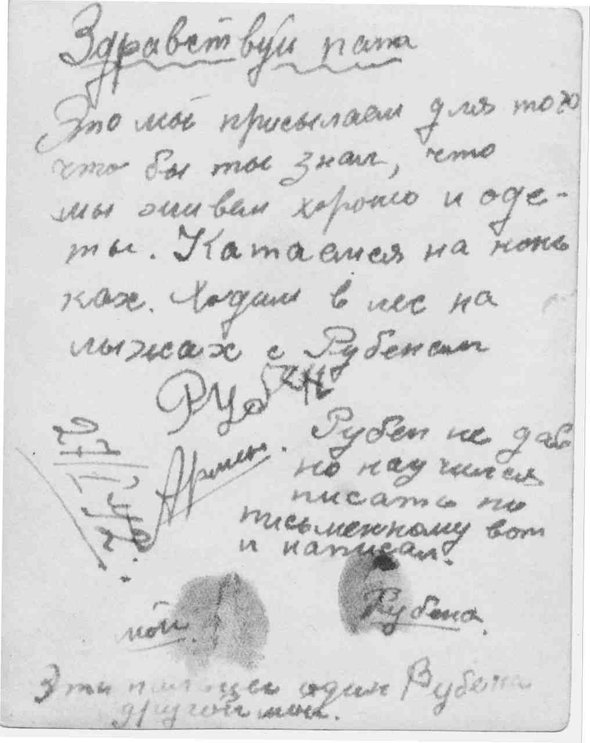 Здравствуй папа
Это мы присылаем для того
что бы ты знал, что
мы живем хорошо и оде-
ты. Катаемся на конь
ках. Ходим в лес на
лыжах с Рубеном
Рубен
Армен.
Рубен не дав
но научился
писать по
письменному вот
и написал.
мой.
Рубена.
Эти пальцы один Рубена
другой мой.